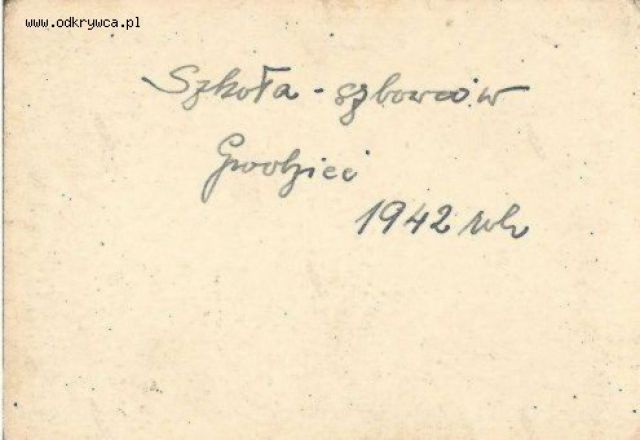 www.odkrywca.pl
Szkoła - szbowców
Grodziec
1942 rok